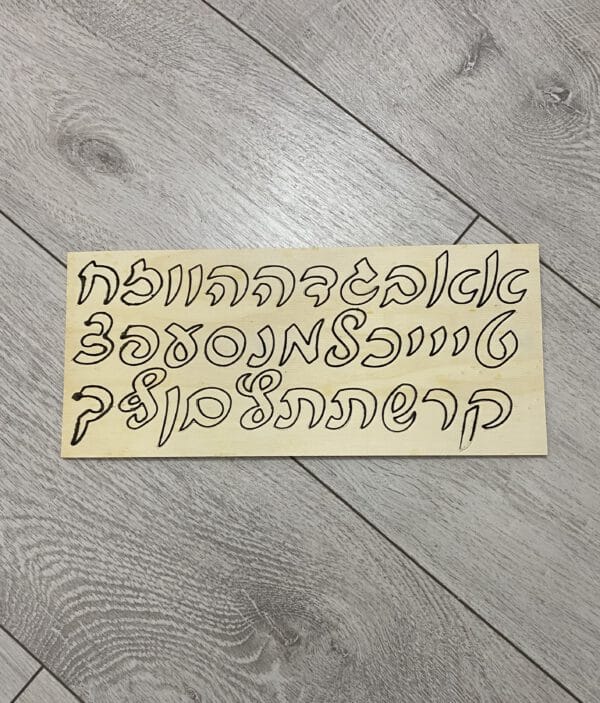 אאבגדההווזח
טיייכלמנסעפצ
קרשתתלםןףך